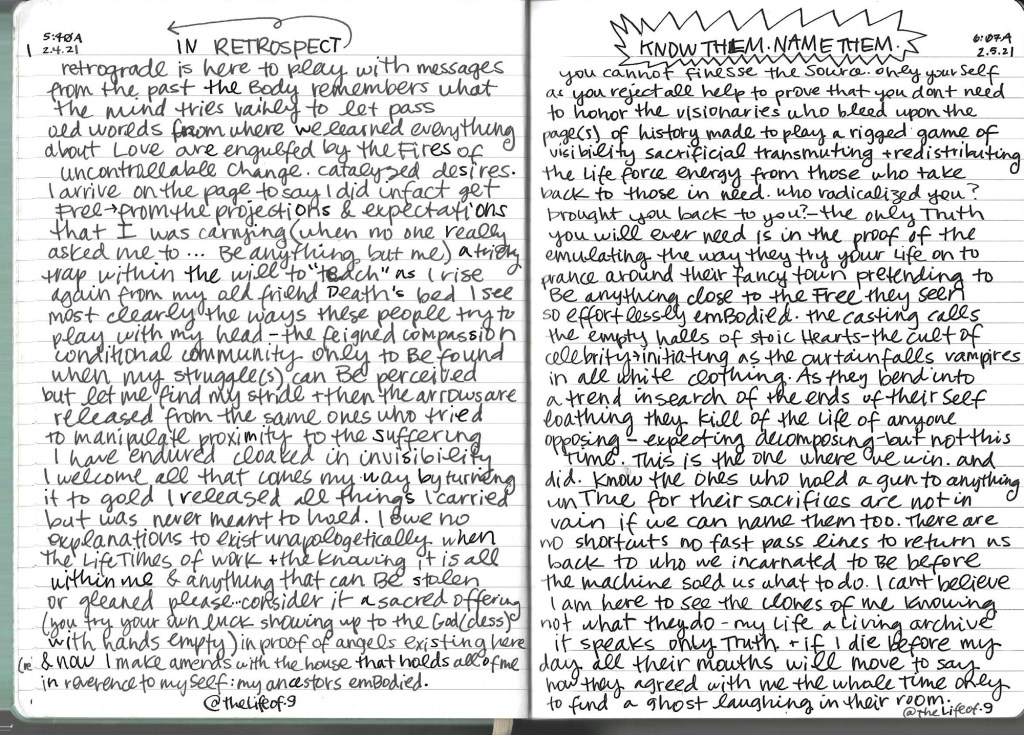 5:40A
2.4.21
IN RETROSPECT
retrograde is here to play with messages
from the past the Body remembers what
the mind tries vainly to let pass
old worlds from where we learned everything
about Love are engulfed by the Fires of
uncontrollable change. catalyzed desires.
I arrive on the page to say I did infact get
Free → from the projections & expectations
that I was carrying (when no one really
asked me to ... Be anything but me) a tricky
trap within the will to "teach" as I rise
again from my old friend Death's bed I see
most clearly the ways these people try to
play with my head - the feigned compassion
conditional community only to Be found
when my struggle(s) can Be perceived
but let me find my stride + then the arrows are
released from the same ones who tried
to manipulate proximity to the suffering
I have endured cloaked in invisibility
I welcome all that comes my way by turning
it to gold I released all things I carried
but was never meant to hold. I owe no
explanations to exist unapologetically when
the LifeTimes of work + the Knowing it is all
within me & anything that can Be stolen
or gleaned please... consider it a sacred offering
(you try your own luck showing up to the God(dess)
with hands empty) in proof of angels existing here
& now I make amends with the house that holds all of me
in reverence to my self: my ancestors emBodied.
@thelifeof.9
6:07A
2.5.21
KNOW THEM. NAME THEM.
you cannot finesse the Source. only your Self
as you reject all help to prove that you dont need
to honor the visionaries who bleed upon the
page(s) of history made to play a rigged game of
visibility sacrificial transmuting + redistributing
the Life force energy from those who take
back to those in need. who radicalized you?
brought you back to you? - the only Truth
you will ever need is in the proof of the
emulating the way they try your Life on to
prance around their fancy town pretending to
Be anything close to the Free they seen
so effortlessly emBodied. the casting calls
the empty halls of stoic Hearts - the cult of
celebrity → initiating as the curtain falls vampires
in all white clothing. As they bend into
a trend in search of the ends of their Self
loathing they kill of the life of anyone
opposing - expecting decomposing - but not this
Time. This is the one where we win. and
did. Know the ones who hold a gun to anything
unTrue for their sacrifices are not in
vain if we can name them too. There are
no shortcuts no fast pass lines to return us
back to who we incarnated to Be before
the machine sold us what to do. I cant believe
I am here to see the clones of me Knowing
not what they do - my life a living archive
it speaks only Truth + if I die before my
day all their mouths will move to say
how they agreed with me the whole time only
to find a ghost laughing in their room.
@thelifeof.9